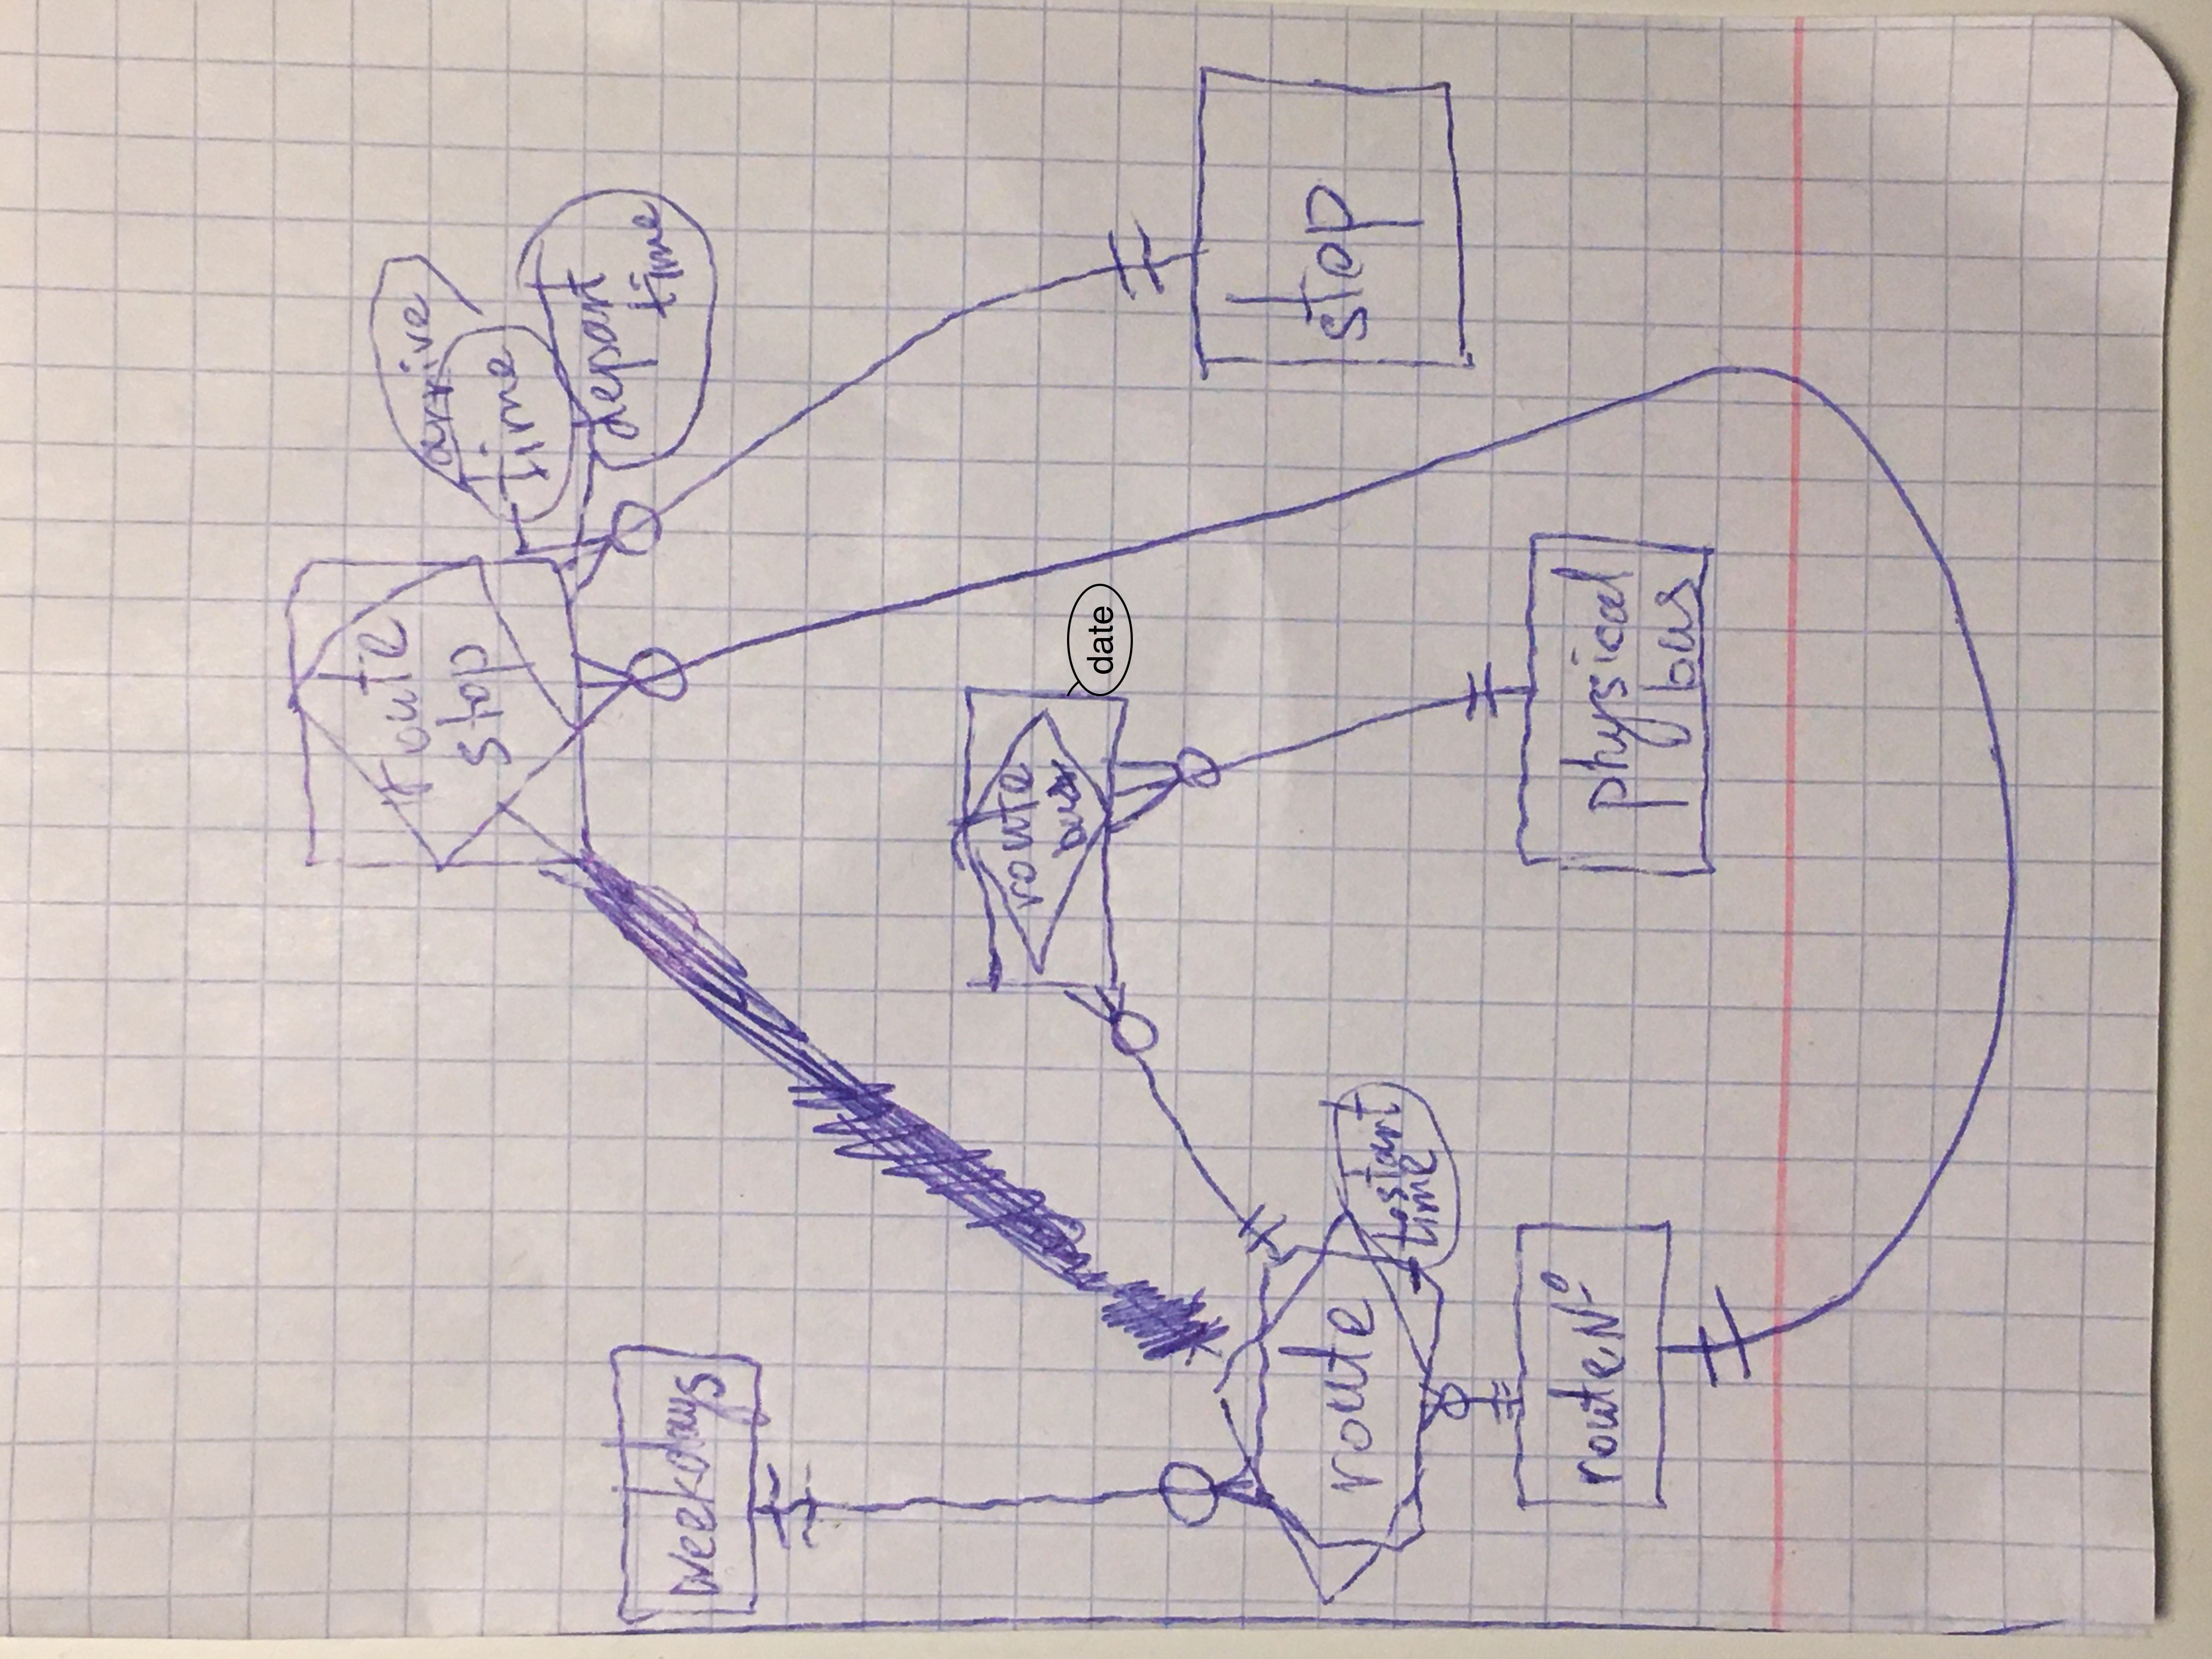 route
stop
arrive
time
depart
time
weekdays
route
bus
date
route
start
time
stop
route №
physical
bus